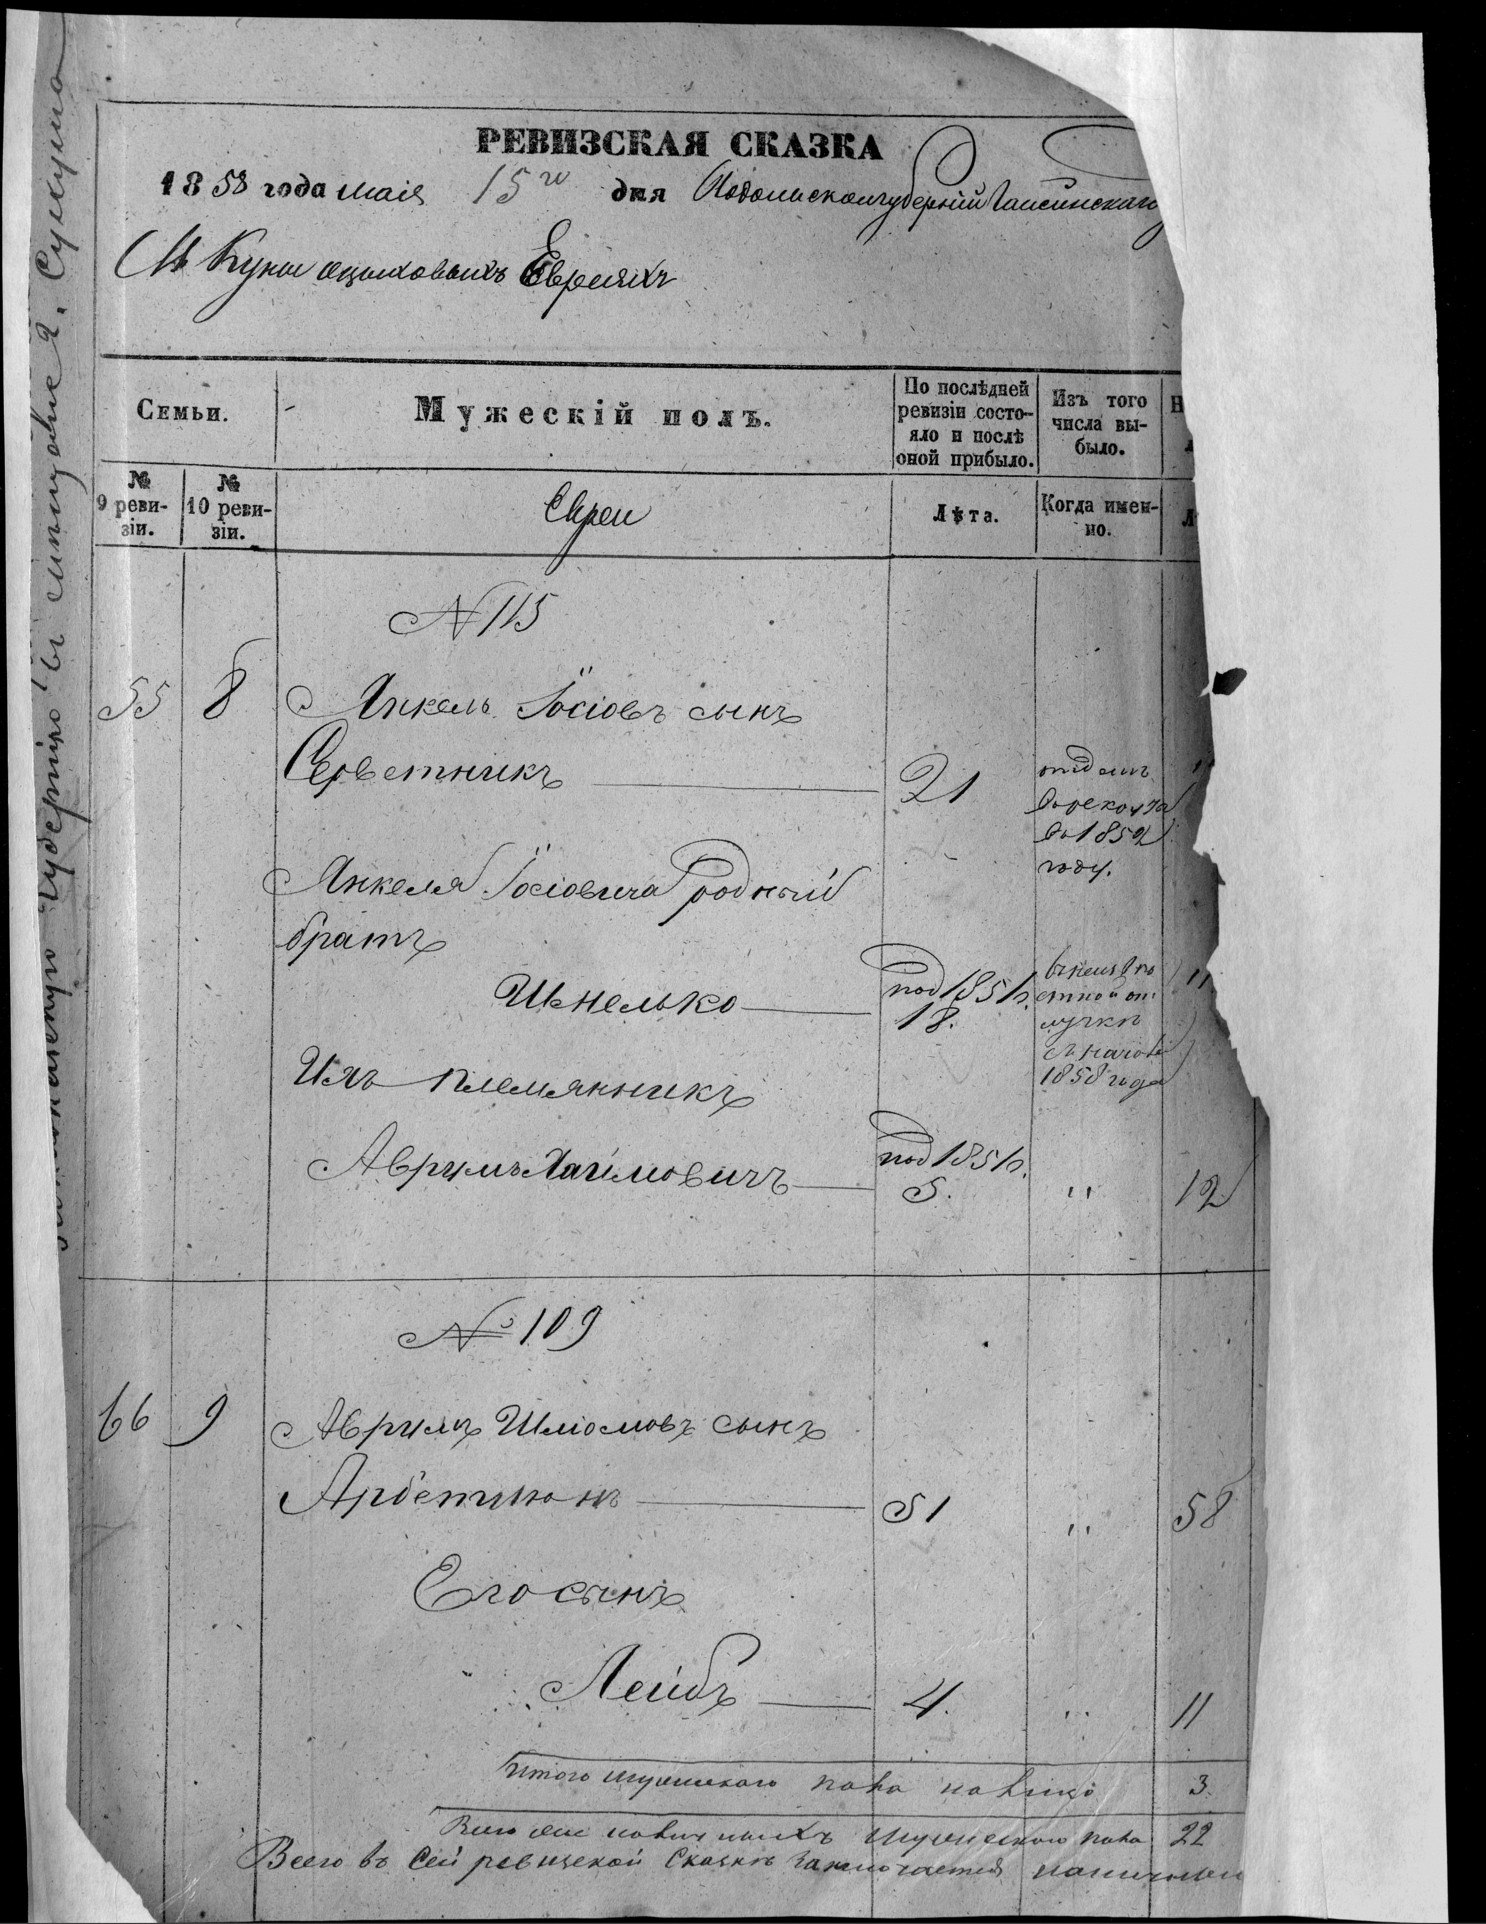 РЕВИЗСКАЯ СКАЗКА
1858 года маія 15го дня Подольской губерніи Гайсинскаго
М Куны Евреяхъ
Семьи.
Мужескій полъ.
По послѣдней ревизіи состо-
яло и послѣ
оной прибыло.
Изъ того
числа вы-
было.
№
9 реви-
зіи.
№
10 реви-
зіи.
Евреи
Лѣта.
Когда имен-
но.
N 115
55 8 Янкель Іосіовъ сынъ
Серветникъ 21
отданъ
въ рекруты
въ 1852
году.
Янкеля Іосіовича родный
братъ
Шмелько под 1851 г. 18.
въ неизвѣ
стной от
лучки
съ
1858 года
"
Ихъ племянникъ
Аврумъ Хаимовичъ под 1851 г. 5. " 12
№ 109
66 9 Аврумъ Шліомовъ сынъ
Арбетманъ 51 " 58
Его сынъ
Лейбъ 4. " 11
Итого мужескаго пола на лицо 3.
Всего мужескаго пола 22
Всего въ сей ревизской сказкѣ заключается наличныхъ
въ мѣщане
губернію